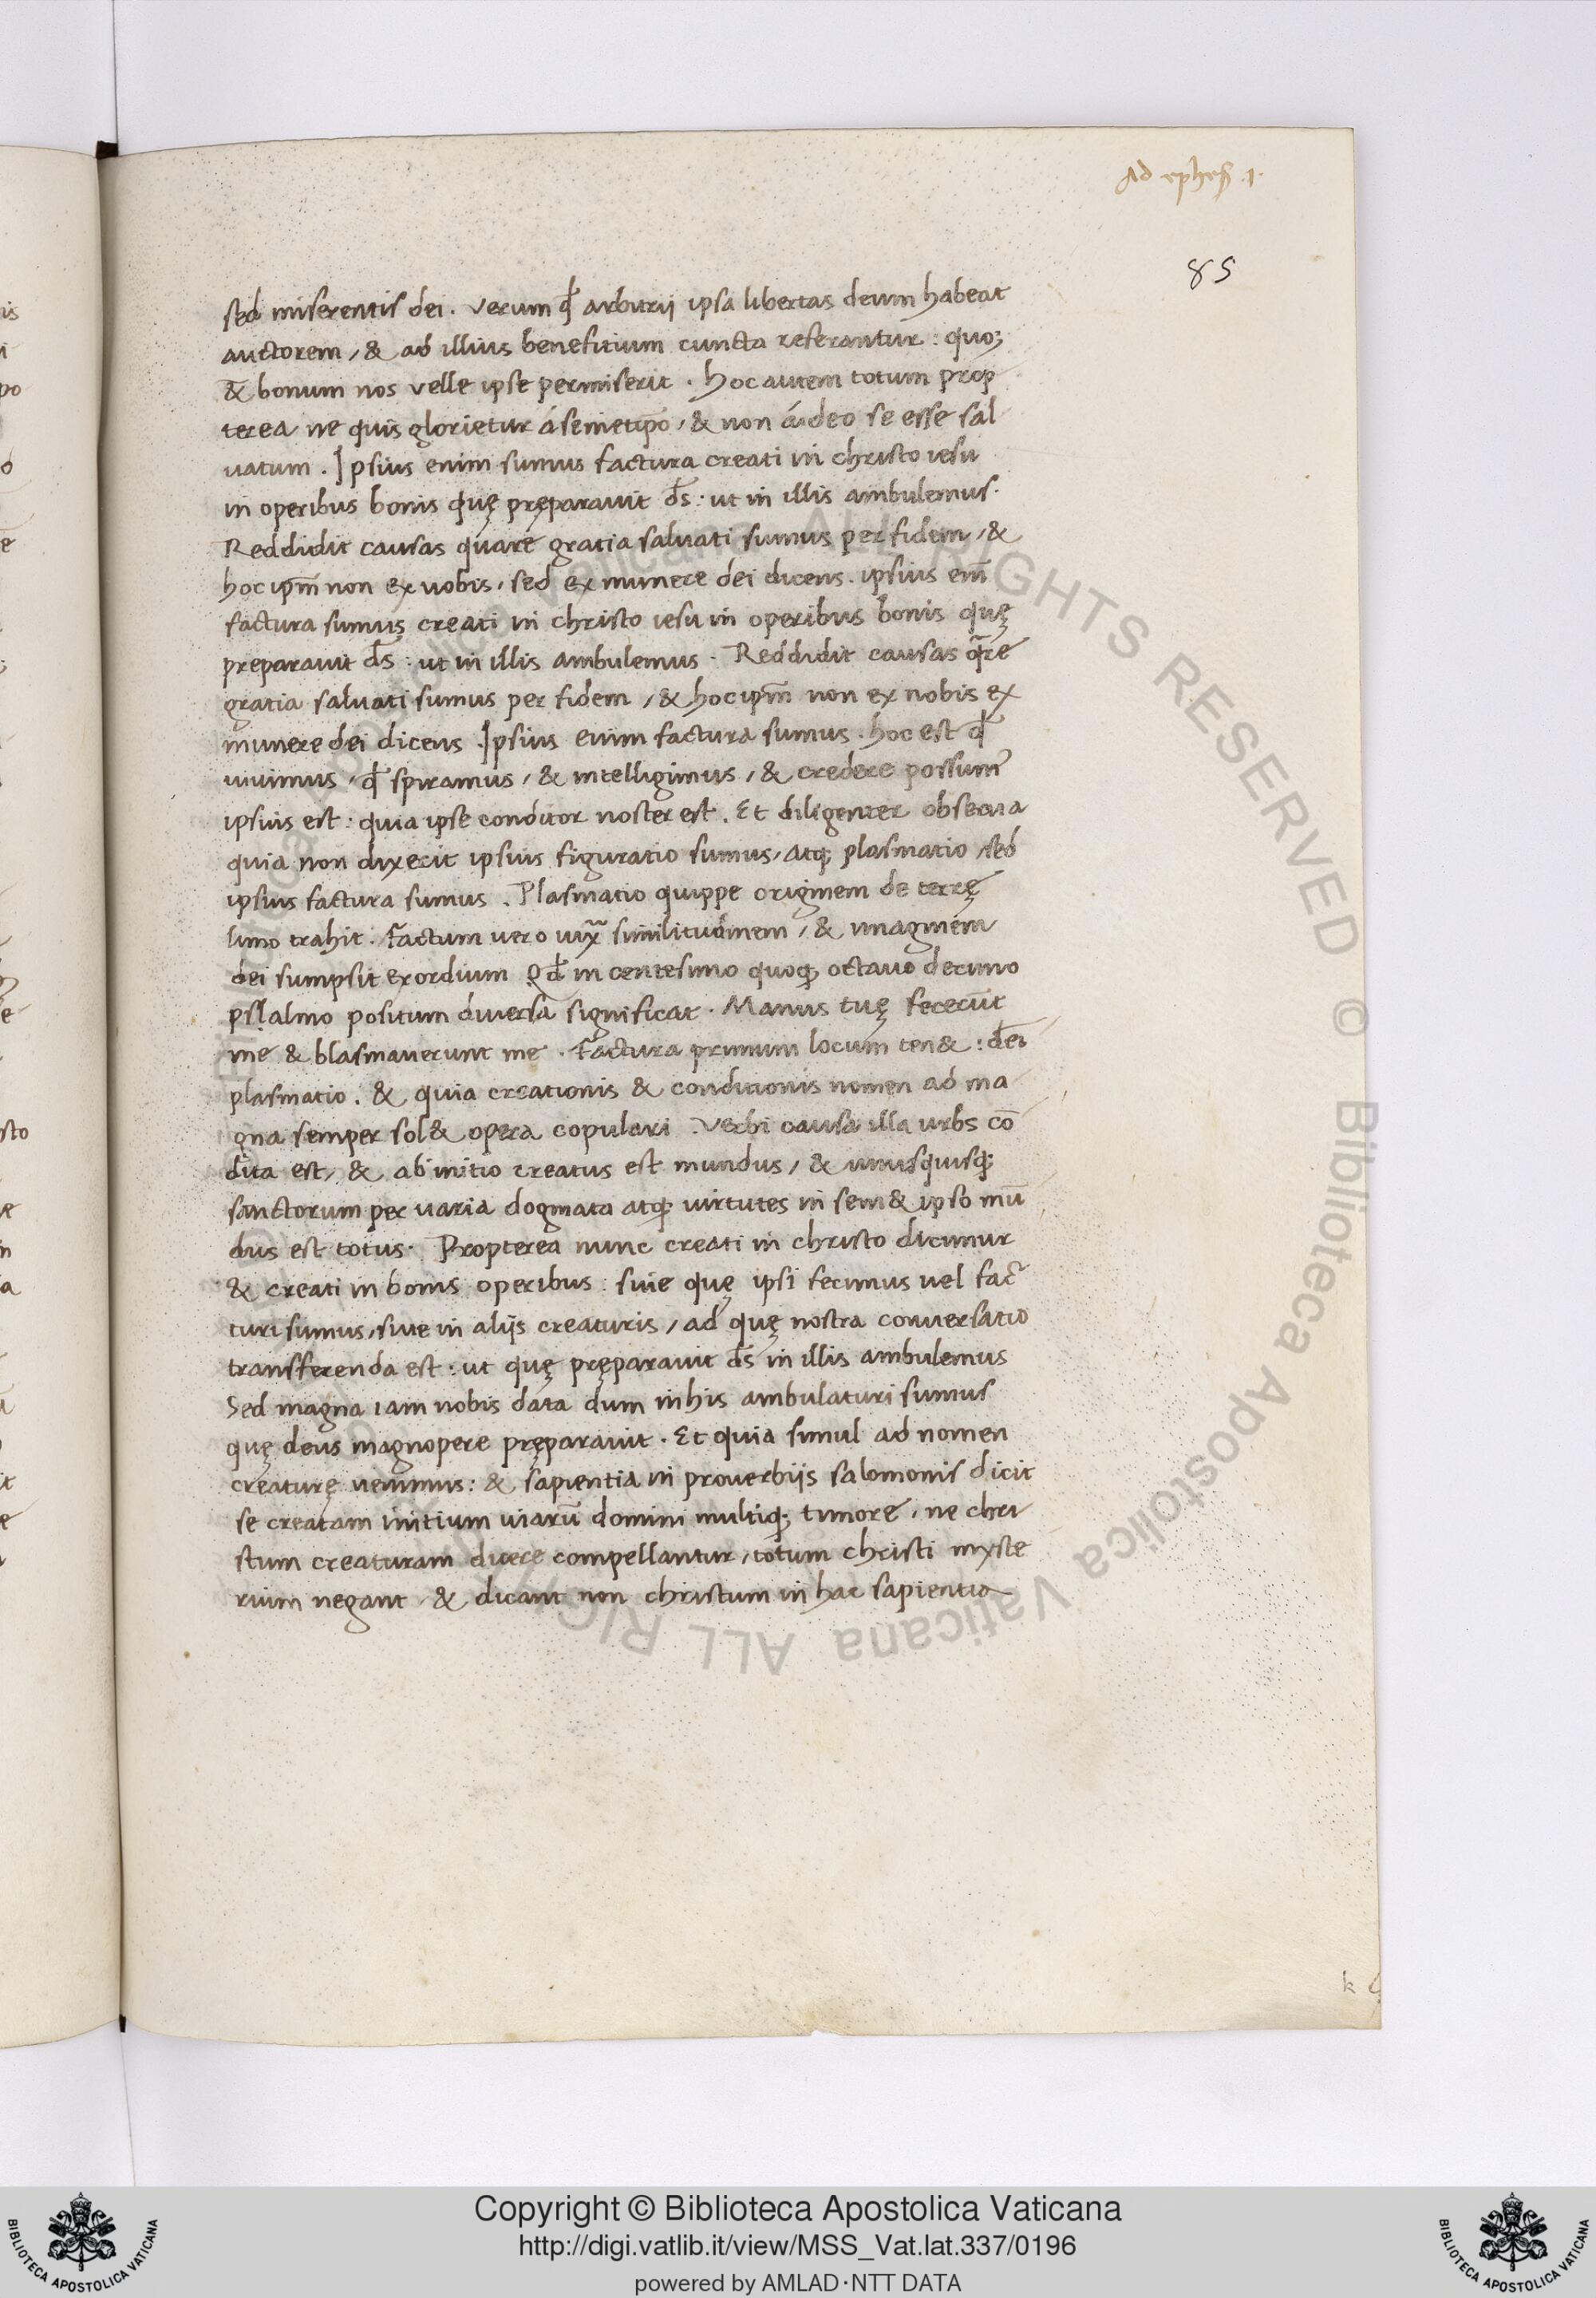 Ad ephes 1.
85
sed miserentis dei. verum qđ arbitrij ipsa libertas deum habeat
auctorem, & ad illius benefitium cuncta referantur: quo;
& bonum nos velle ipse permiserit. hoc autem totum prop
terea ne quis glorietur á semetip̄o, & non á deo se esse sal
uatum. Ipsius enim sumus factura creati in christo iesu
in operibus bonis quę pręparauit d̄s: ut in illis ambulemus.
Reddidit causas quare gratia saluati sumus per fidem, &
hoc ip̄m non ex uobis, sed ex munere dei dicens. ipsius em̄
factura sumus creati in christo iesu in operibus bonis quę
preparauit d̄s: ut in illis ambulemus. Reddidit causas q̄re
gratia saluati sumus per fidem, & hoc ip̄m non ex nobis ex
munere dei dicens. Ipsius enim factura sumus. hoc est qđ
uiuimus, qđ spiramus, & intelligimus, & credere possum᷒
ipsius est: quia ipse conditor noster est. Et diligenter obserua
quia non dixerit ipsius figuratio sumus, atq; plasmatio, sed
ipsius factura sumus. Plasmatio quippe originem de terrę
limo trahit. Factum vero iux̄ similitudinem, & imaginem
dei sumpsit exordium Qđ in centesimo quoq; octauo decimo
pslalmo positum diuersa significat. Manus tuę fecerūt
me & blasmauerunt me. Factura primum locum ten&: dēi
plasmatio. & quia creationis & conditionis nomen ad ma
gna semper sol& opera copulari. Verbi causa illa urbs cō
dita est, & ab initio creatus est mundus, & unusquisq;
sanctorum per uaria dogmata atq; uirtutes in sem& ipso mū
dus est totus. Propterea nunc creati in christo dicimur
& creati in bonis operibus: siue quę ipsi fecimus uel fac̄
turi sumus, siue in alijs creaturis, ad quę nostra conuersatio
transferenda est: ut quę pręparauit d̄s in illis ambulemus
Sed magna iam nobis data dum in his ambulaturi sumus
quę deus magnopere pręparauit. Et quia simul ad nomen
creaturę uenimus: & sapientia in proverbiis salomonis dicit
se creatam initium uiarū domini multiq; timore, ne chri
stum creaturam dicere compellantur, totum christi myste
rium negant, & dicant non christum in hac sapientia
Copyright © Biblioteca Apostolica Vaticana
http://digi.vatlib.it/view/MSS_Vat.lat.337/0196
powered by AMLAD·NTT DATA